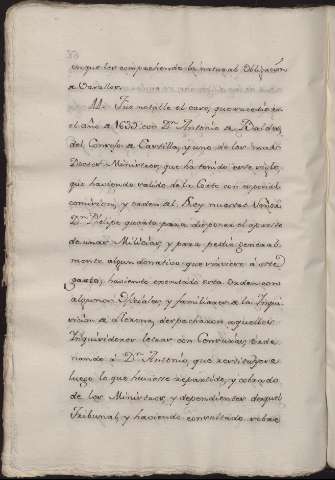 en que los comprehende la natural obligacion
de Vasallos.
11. Fue notable el caso, que sucedio en
el año de 1633 con Dn. Antonio de Valdes,
del Consejo de Castilla, y uno de los mas
Doctos Ministros, que ha tenido este siglo,
que haviendo salido de la Corte con especial
comision, y orden del Rey nuestro Señor
Dn. Phelipe quarto para disponer el apresto
de unas Milicias, y para pedir general-
mente algun donativo que sirviese à este
gasto; haviendo executado esta orden con
algunos Oficiales, y familiares de la Inqui-
sicion de Llerena, despacharon aquellos
Inquisidores letras con Censuras, orde-
nando à Dn. Antonio, que restituyese
luego lo que huviese repartido, y cobrado
de los Ministros, y dependientes de aquel
Tribunal, y haviendo consultado sobre